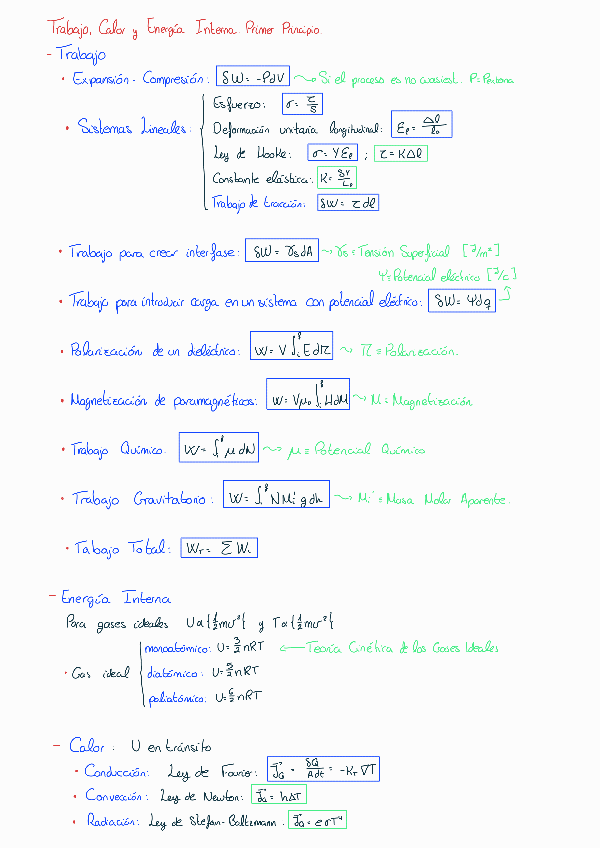 Trabajo, Calor y Energía Interna. Primer Principio.
- Trabajo
• Expansión - Compresión: δW = -PdV → Si el proceso es no cuasiest. P = Pexterna
• Sistemas Lineales:
Esfuerzo: σ = τ/S
Deformación unitaria longitudinal: Eₚ = Δl/l₀
Ley de Hooke: σ = YEₚ ; τ = KΔl
Constante elástica: K = SY/L₀
Trabajo de tracción: δW = τdl
• Trabajo para crear interfase: δW = γsdA → γs = Tensión Superficial [J/m²]
Ψ = Potencial eléctrico [J/C]
• Trabajo para introducir carga en un sistema con potencial eléctrico: δW = Ψdq
• Polarización de un dieléctrico: W = V∫ᵢᶠ EdΠ → Π = Polarización.
• Magnetización de paramagnéticos: W = Vμ₀∫ᵢᶠ HdM → M = Magnetización
• Trabajo Químico: W = ∫ᵢᶠ μdN → μ = Potencial Químico
• Trabajo Gravitatorio: W = ∫ᵢᶠ NMᵢ'gdh → Mᵢ' = Masa Molar Aparente.
• Tabajo Total: W_T = ΣWᵢ
- Energía Interna
Para gases ideales U α {½mv²} y T α {½mv²}
• Gas ideal
monoatómico: U = 3/2 nRT ← Teoría Cinética de los Gases Ideales
diatómico: U = 5/2 nRT
poliatómico: U = 6/2 nRT
- Calor: U en tránsito
• Conducción: Ley de Fourier: J_Q = δQ/Adt = -K_T ∇T
• Convección: Ley de Newton: J_Q = hΔT
• Radiación: Ley de Stefan-Boltzmann: J_Q = εσT⁴